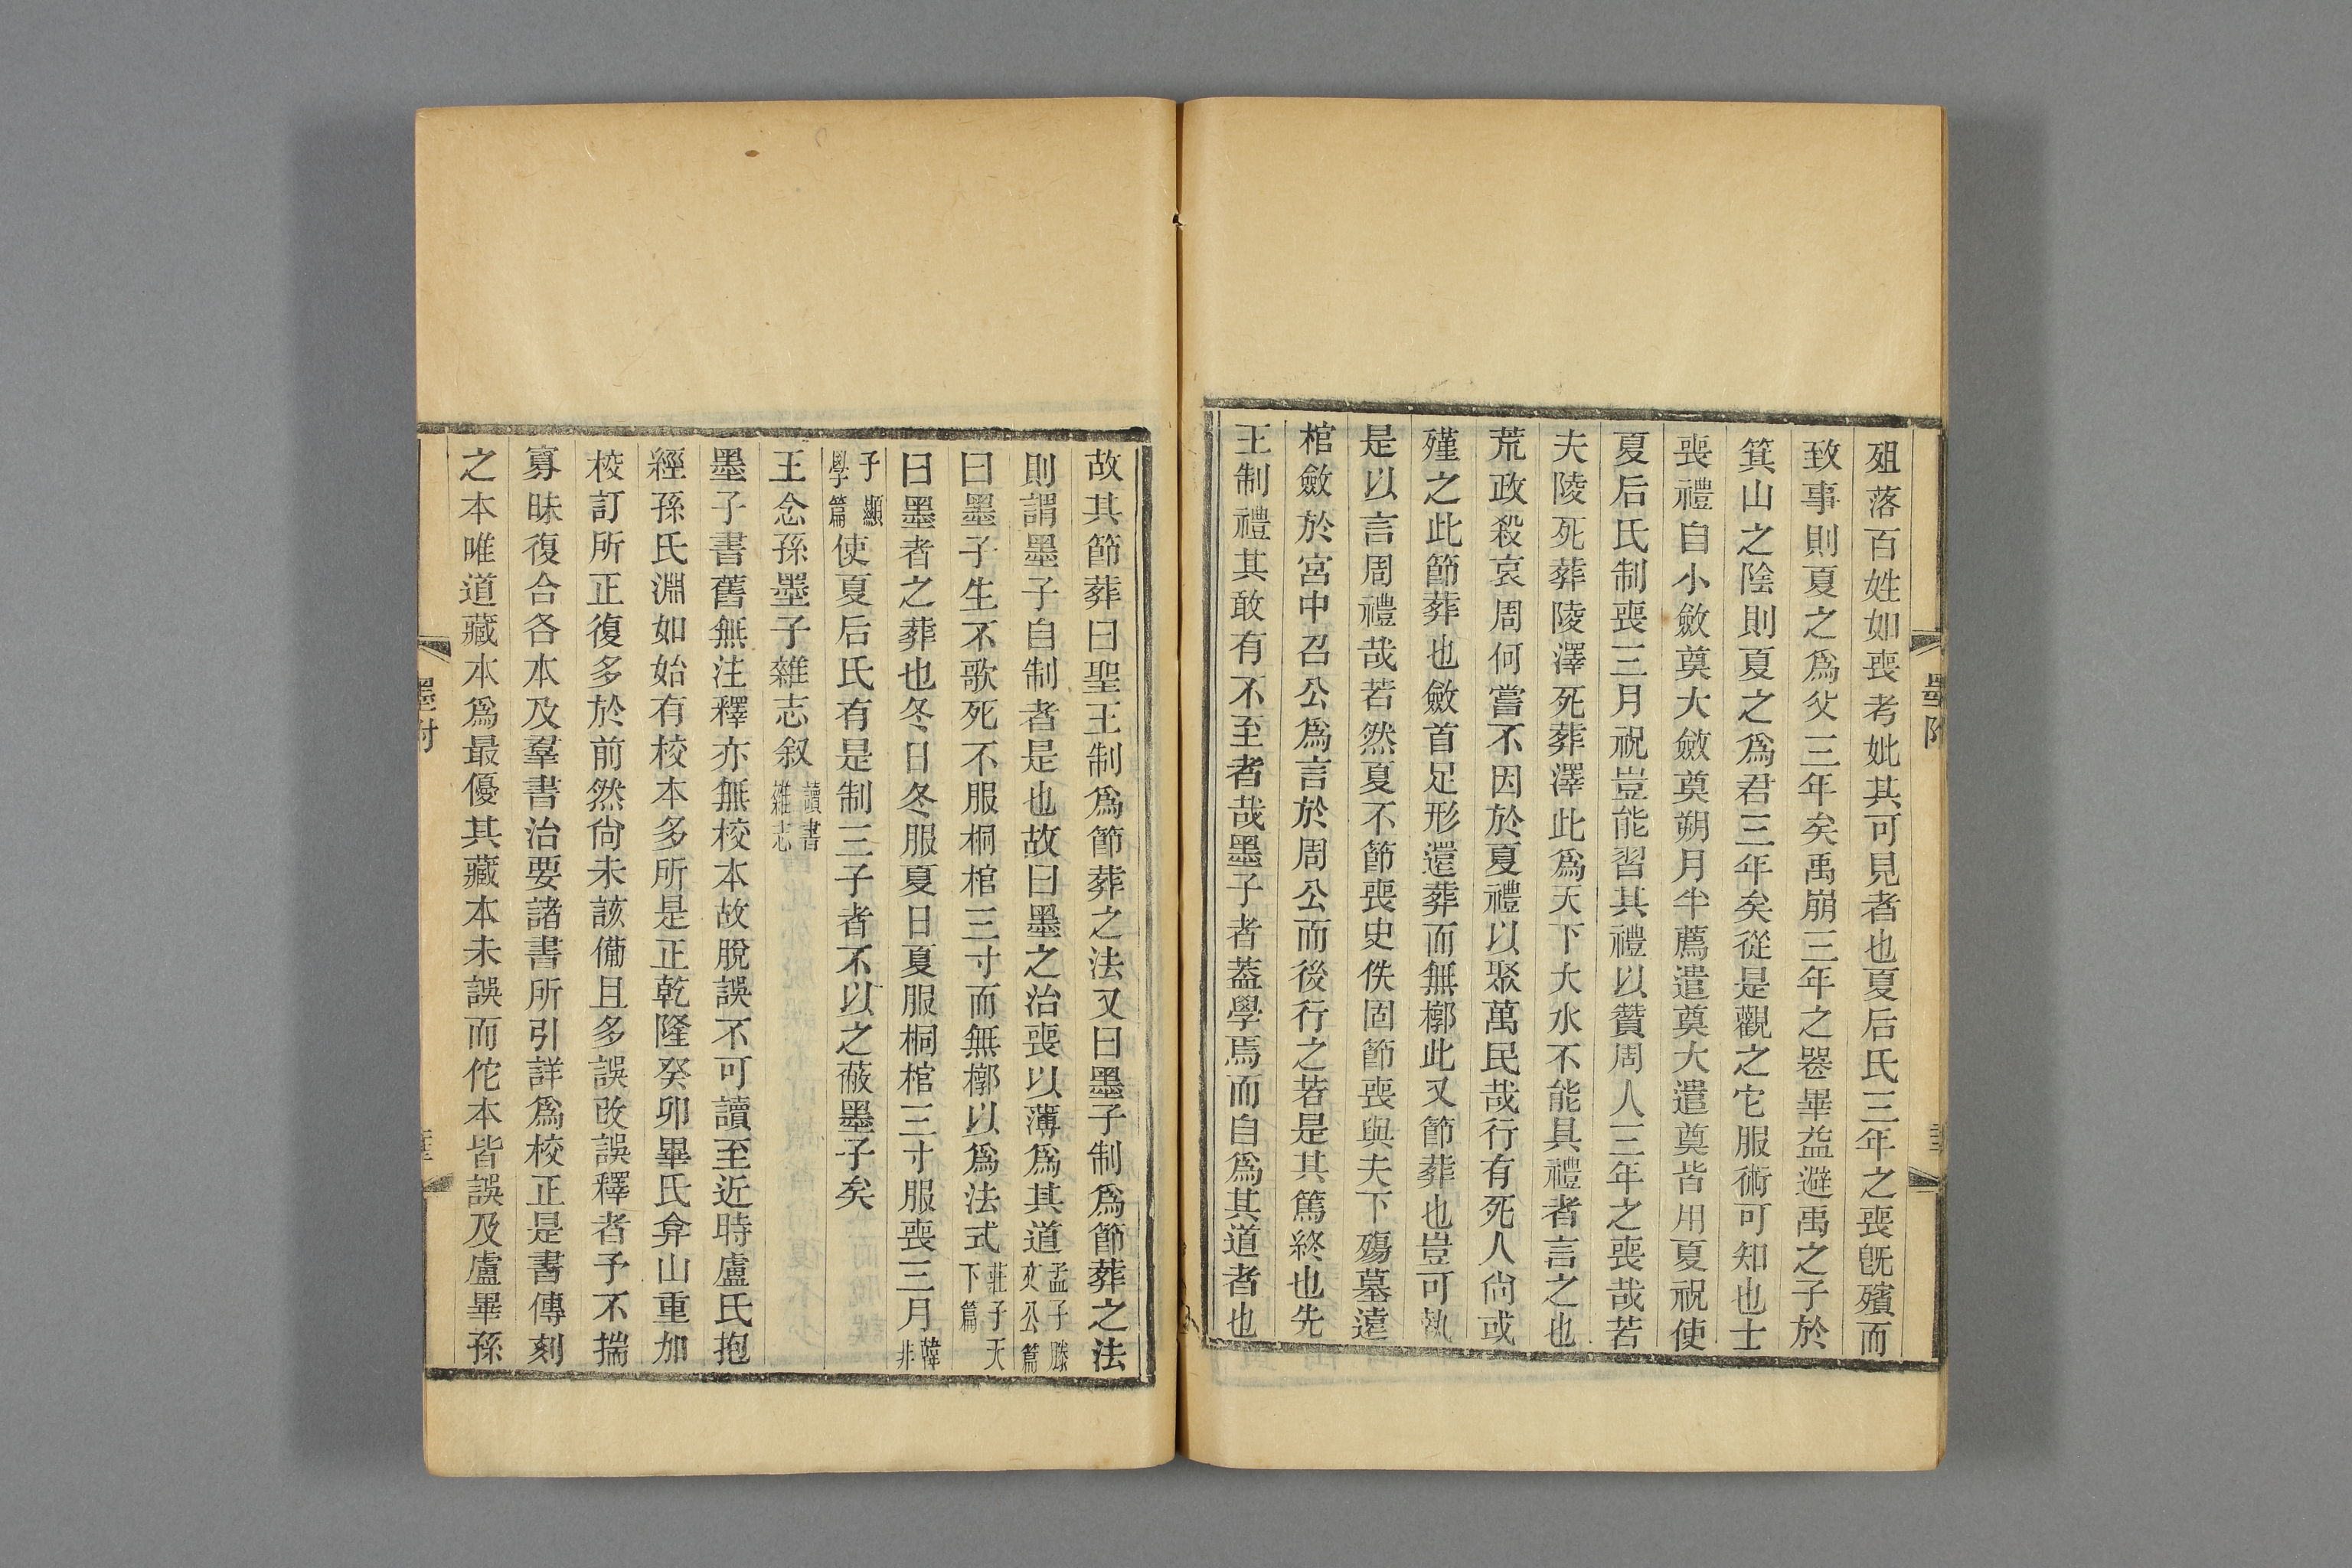 殂落百姓如喪考妣其可見者也夏后氏三年之喪旣殯而
致事則夏之爲父三年矣禹崩三年之喪畢益避禹之子於
箕山之陰則夏之爲君三年矣從是觀之它服術可知也士
喪禮自小斂奠大斂奠朔月半薦遣奠大遣奠皆用夏祝使
夏后氏制喪三月祝豈能習其禮以贊周人三年之喪哉若
夫陵死葬陵澤死葬澤此爲天下大水不能具禮者言之也
荒政殺哀周何嘗不因於夏禮以聚萬民哉行有死人尙或
殣之此節葬也斂首足形還葬而無槨此又節葬也豈可執
是以言周禮哉若然夏不節喪史佚固節喪與夫下殤墓遠
棺斂於宮中召公爲言於周公而後行之若是其篤終也先
王制禮其敢有不至者哉墨子者蓋學焉而自爲其道者也
墨附
故其節葬曰聖王制爲節葬之法又曰墨子制爲節葬之法
則謂墨子自制者是也故曰墨之治喪以薄爲其道孟子滕文公篇
曰墨子生不歌死不服桐棺三寸而無槨以爲法式莊子天下篇
曰墨者之葬也冬日冬服夏日夏服桐棺三寸服喪三月韓非
子顯學篇使夏后氏有是制三子者不以之蔽墨子矣
王念孫墨子雜志叙讀書雜志
墨子書舊無注釋亦無校本故脫誤不可讀至近時盧氏抱
經孫氏淵如始有校本多所是正乾隆癸卯畢氏弇山重加
校訂所正復多於前然尙未該備且多誤改誤釋者予不揣
寡昧復合各本及羣書治要諸書所引詳爲校正是書傳刻
之本唯道藏本爲最優其藏本未誤而佗本皆誤及盧畢孫
墨附